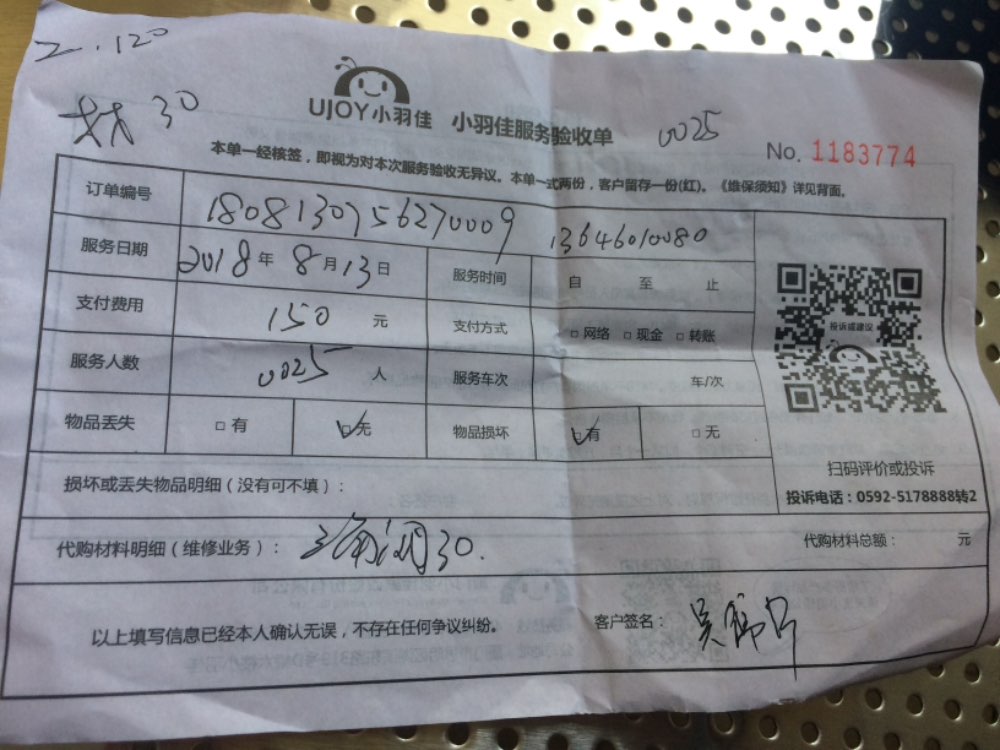 工.120
材30
UJOY小羽佳 小羽佳服务验收单 0025
No. 1183774
本单一经核签，即视为对本次服务验收无异议。本单一式两份，客户留存一份(红)。《维保须知》详见背面。
订单编号 1808130756270009 13646010080
服务日期 2018年8月13日 服务时间 自 至 止
支付费用 150 元 支付方式 □网络 □现金 □转账
投诉或建议
服务人数 0025 人 服务车次 车/次
物品丢失 □有 ☑无 物品损坏 ☑有 □无
扫码评价或投诉
投诉电话：0592-5178888转2
损坏或丢失物品明细（没有可不填）：
代购材料明细（维修业务）： 30. 代购材料总额： 元
以上填写信息已经本人确认无误，不存在任何争议纠纷。 客户签名： 吴